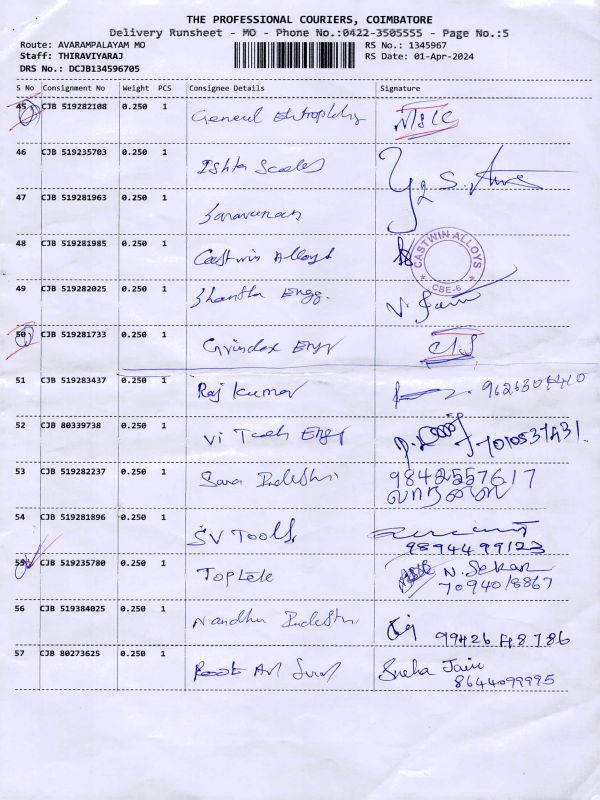 THE PROFESSIONAL COURIERS, COIMBATORE
Delivery Runsheet - MO - Phone No.:0422-3505555 - Page No.:5
Route: AVARAMPALAYAM MO RS No.: 1345967
Staff: THIRAVIYARAJ RS Date: 01-Apr-2024
DRS No.: DCJB134596705
S No Consignment No Weight PCS Consignee Details Signature
45 CJB 519282108 0.250 1 General
46 CJB 519235703 0.250 1 Ishta Scales
47 CJB 519281963 0.250 1 Saravanan
48 CJB 519281985 0.250 1 Castwin Alloys CASTWIN ALLOYS CBE-6
49 CJB 519282025 0.250 1 Shantha Engg.
50 CJB 519281733 0.250 1 Grindex Engr
51 CJB 519283437 0.250 1 Raj Kumar
52 CJB 80339738 0.250 1 Vi Tech Engg
53 CJB 519282237 0.250 1 Sara Industri 9842557617
54 CJB 519281896 0.250 1 SV Tools
9894499123
55 CJB 519235780 0.250 1 Toptele N. Sekar
7094018867
56 CJB 519384025 0.250 1 Nandhu Industri 99426 48786
57 CJB 80273625 0.250 1 Sneha Jain
8644099995